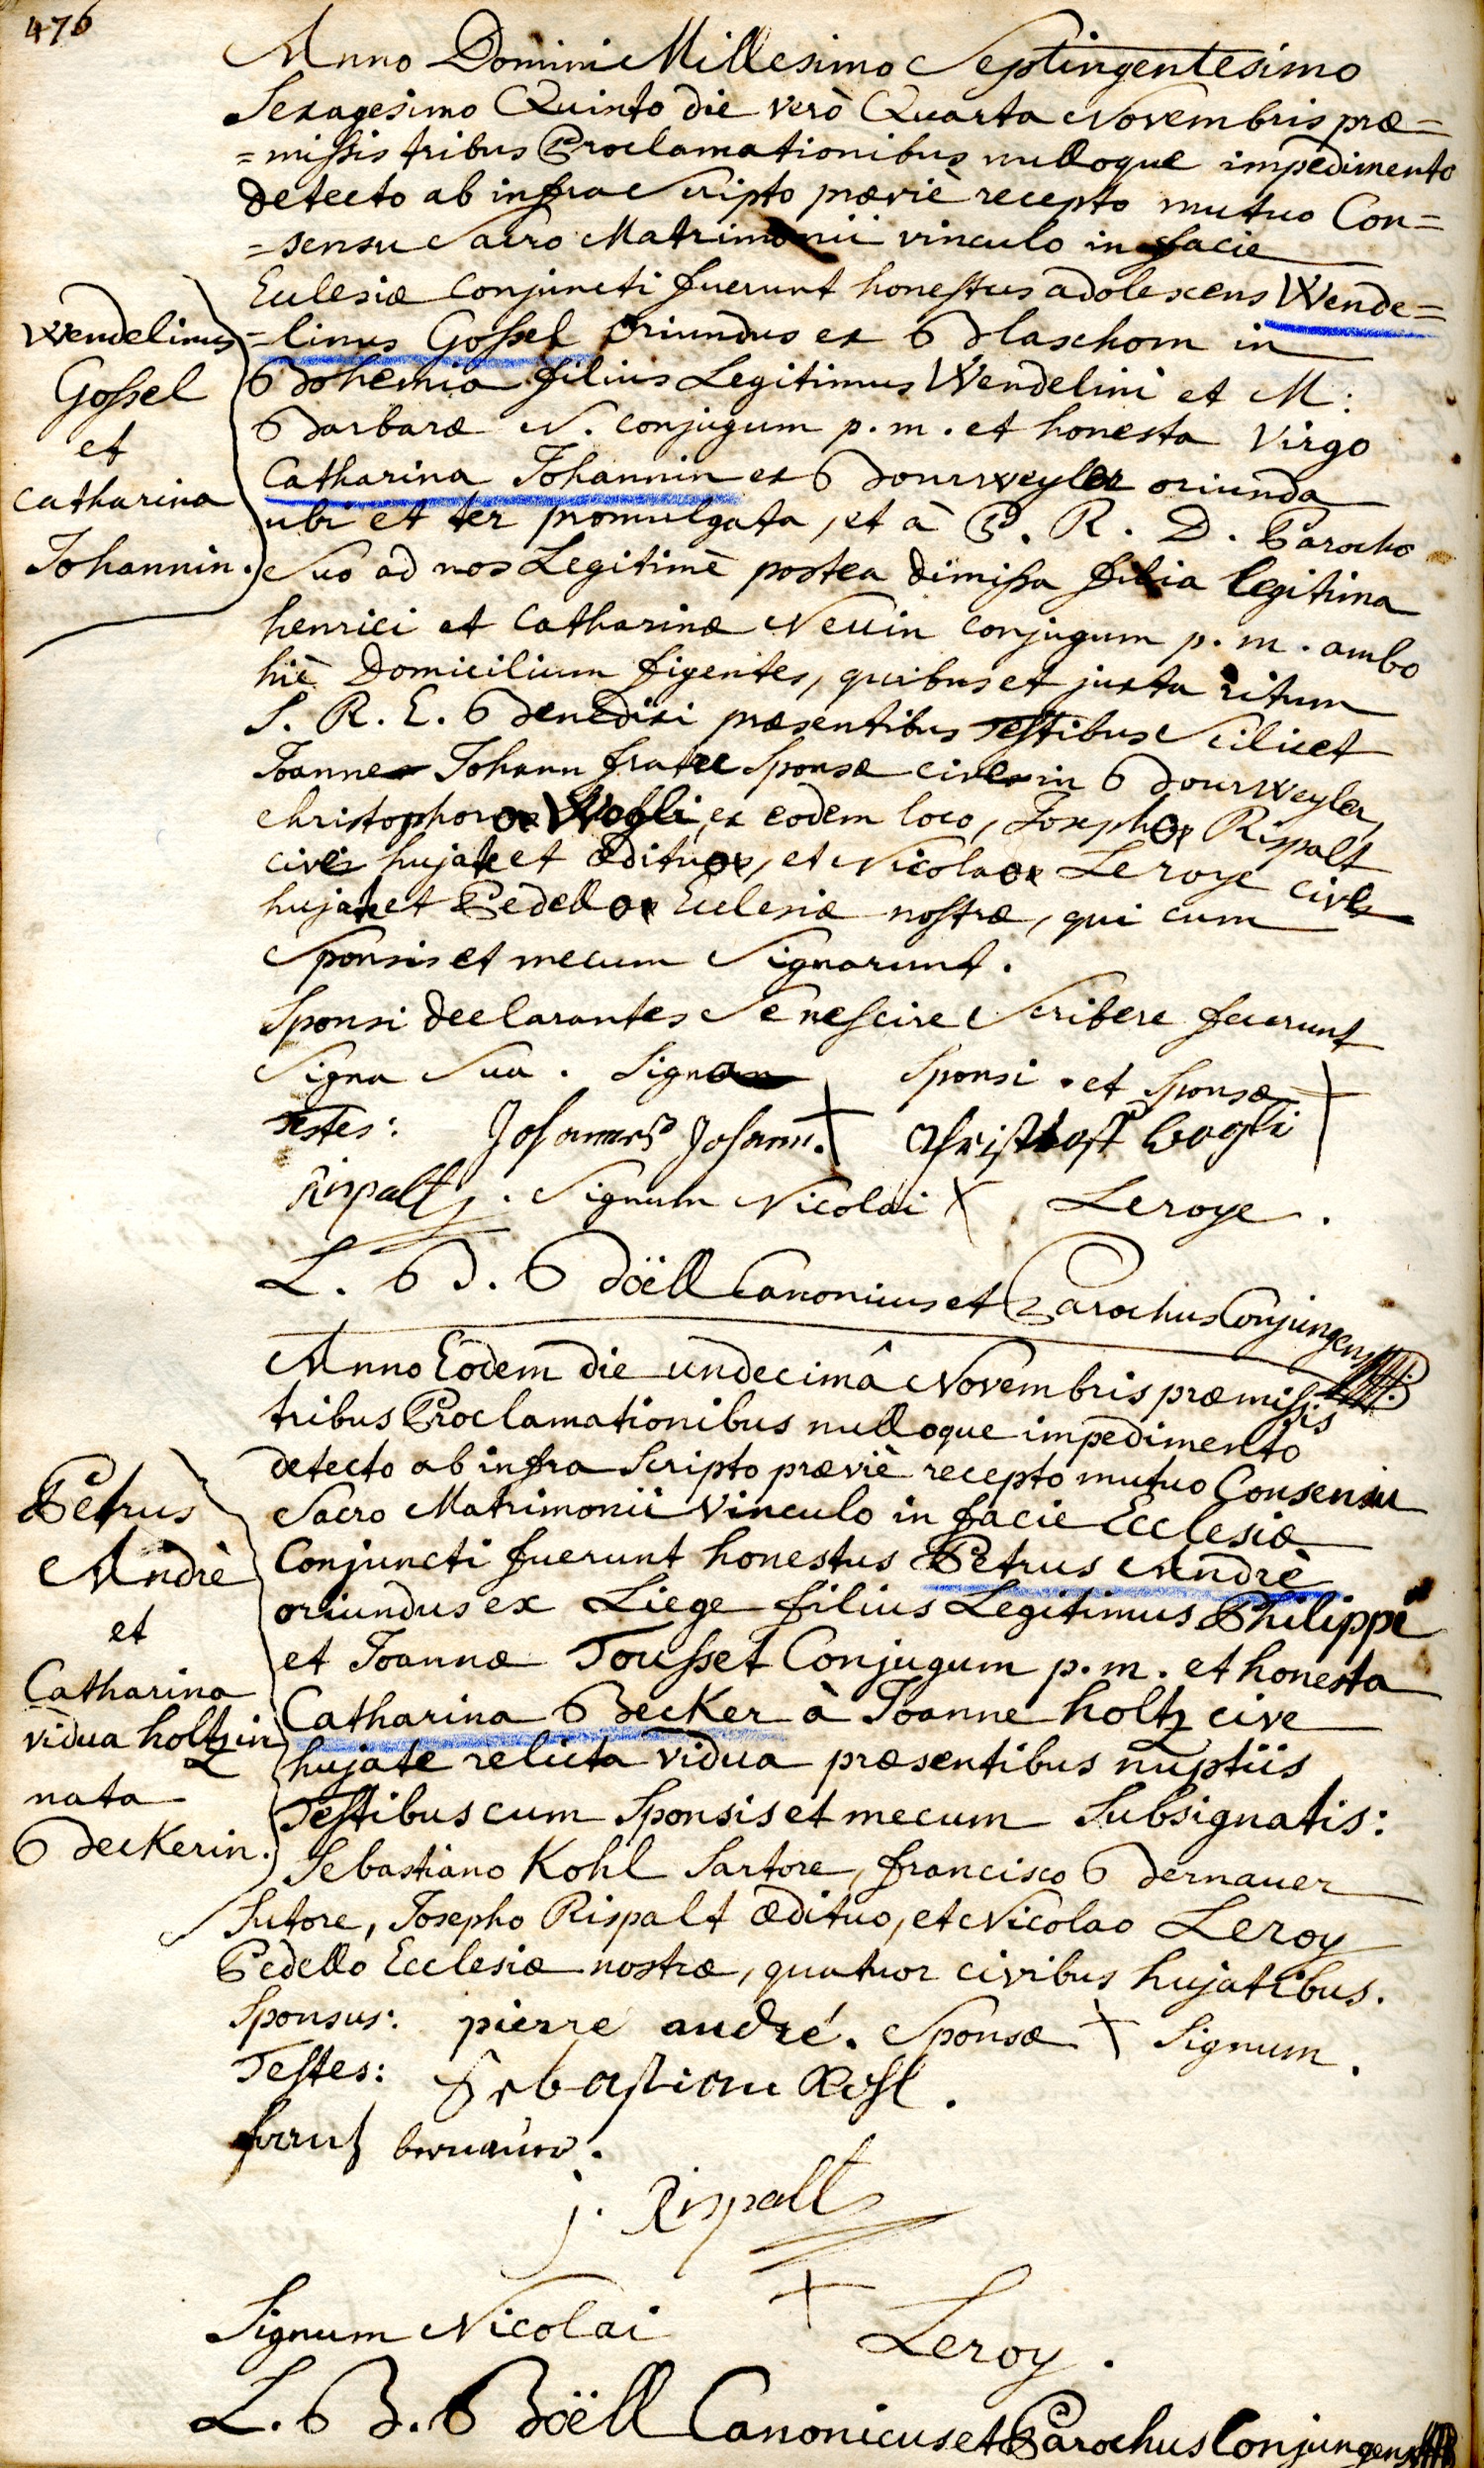 476
Anno Domini Millesimo Septingentesimo
Sexagesimo Quinto die verò Quarta Novembris præ=
=missis tribus Proclamationibus nulloque impedimento
detecto ab infra Scripto præviè recepto mutuo Con=
=sensu Sacro Matrimonii vinculo in facie
Ecclesiæ conjuncti fuerunt honestus adolescens Wende=
=linus Gossel oriundus ex Blaschom in
Bohemia filius Legitimus Wendelini et M:
Barbaræ N. conjugum p. m. et honesta Virgo
Catharina Johannin ex Bourweyler oriunda
ubi et ter promulgata, et à P. R. D. Parocho
Suo ad nos Legitimè postea dimissa filia legitima
henrici et Catharinæ Neuin conjugum p. m. ambo
hìc Domicilium figentes, quibus et juxta ritum
S. R. E. Benedixi præsentibus Testibus Scilicet
Joanne Johann fratre Sponsæ cive in Bourweyler,
Christophoro Wogli, ex eodem loco, Josepho Rispalt
cive hujate et ædituo, et Nicolao Leroye cive
hujate et Pedello Ecclesiæ nostræ, qui cum
Sponsis et mecum Signarunt.
Sponsi declarantes Se nescire Scribere fecerunt
Signa Sua. Signa Sponsi + et Sponsæ +
Testes: Johannes Johann. Christhoff Vogli
Rispalt j. Signum Nicolai X Leroye.
L. B. Böell Canonicus et Parochus Conjungens
Wendelinus
Gossel
et
Catharina
Johannin.
Anno Eodem die undecimâ Novembris præmissis
tribus Proclamationibus nulloque impedimento
detecto ab infra Scripto præviè recepto mutuo Consensu
Sacro Matrimonii Vinculo in facie Ecclesiæ
Conjuncti fuerunt honestus Petrus Andrè
oriundus ex Liege filius Legitimus Philippi
et Joannæ Tousset Conjugum p. m. et honesta
Catharina Becker à Joanne holtz cive
hujate relicta vidua præsentibus nuptiis
Testibus cum Sponsis et mecum Subsignatis:
Sebastiano Kohl Sartore, francisco Bernauer
Sutore, Josepho Rispalt ædituo, et Nicolao Leroy
Pedello Ecclesiæ nostræ, quatuor civibus hujatibus.
Sponsus: pierre andré. Sponsæ + Signum.
Testes: Sebastian Kohl.
frantz bernauer.
j. Rispalt
Signum Nicolai + Leroy.
L. B. Böell Canonicus et Parochus Conjungens
Petrus
Andrè
et
Catharina
vidua holtzin
nata
Beckerin.